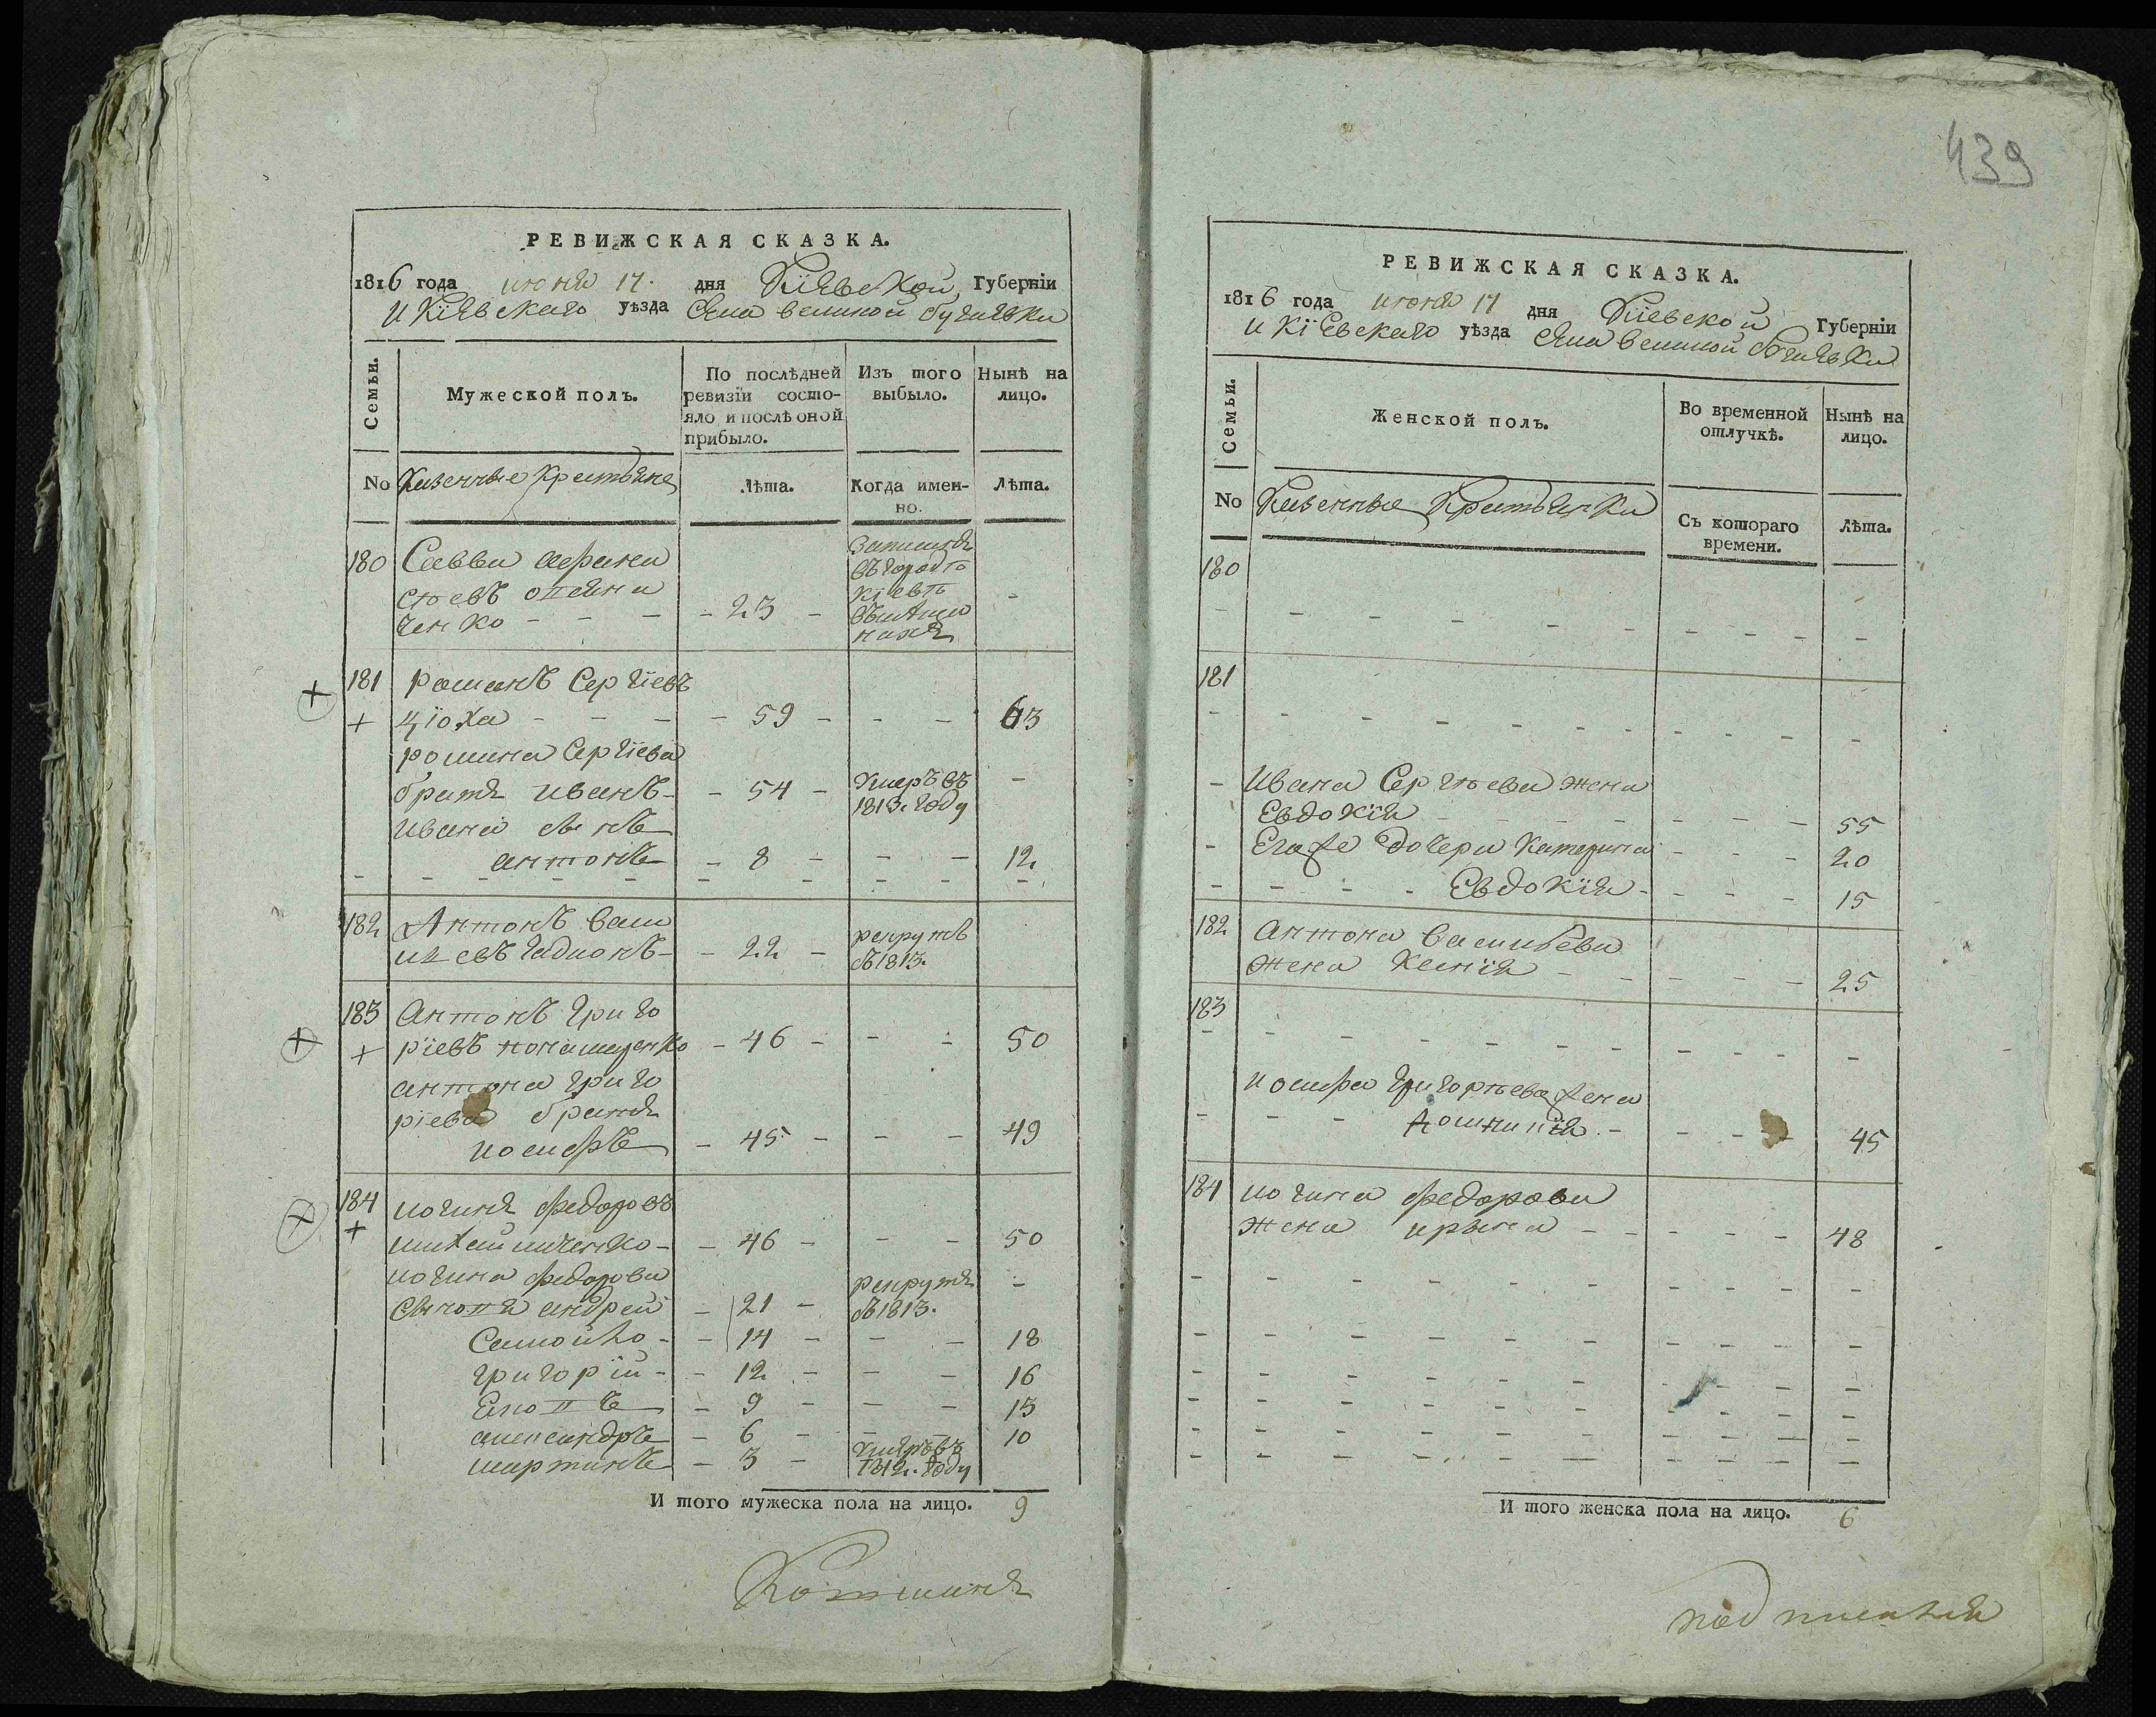 РЕВИЖСКАЯ СКАЗКА.
1816 года июня 17. дня Кіевской Губерніи
и Кіевскаго уѣзда Села великой бугаевки
Семьи.
Мужеской полъ.
По послѣдней ревизіи состо-
яло и послѣ оной прибыло.
Изъ того выбыло.
Нынѣ на лицо.
No Казенные Крестьяне
Лѣта.
Когда имен-
но.
Лѣта.
180 Савва афана
сьевъ
ченко - - - - 23 - -
записанъ
въ городѣ
кіевѣ
въ
181 романъ Сергіевъ
+ цюха - - - - 59 - - - 63
романа Сергіева
братъ иванъ - - 54 - умеръ въ 1813. году -
ивана сынъ
антонъ - 8 - - - 12
182 Антонъ васи
льевъ - - 22 - рекрутъ въ 1813.
183 Антонъ григо
+ ріевъ - 46 - - - 50
антона григо
ріева братъ
иосифъ - 45 - - - 49
184 иосипъ федоровъ
+ михайличенко - - 46 - - - 50
федорова
сыновья андрей - 21 - рекрутъ въ 1813. -
Самойло - - 14 - - - 18
григорій - - 12 - - - 16
- 9 - - - 13
александръ - 6 - - - 10
мартинъ - 3 - умеръ въ 1812. году
И того мужеска пола на лицо. 9
439
РЕВИЖСКАЯ СКАЗКА.
1816 года июня 17 дня Кіевской Губерніи
и кіевскаго уѣзда села великой бугаевки
Семьи.
Женской полъ.
Во временной отлучкѣ.
Нынѣ на лицо.
No Казенные Крестьянки
Съ котораго времени.
Лѣта.
180
181
- Ивана Сергьева жена
Евдокія - - - 55
- Егоже дочери катерина - - 20
- - - - Евдокія - - - - 15
182 Антона васильева
жена ксенія - - - - 25
183
иосифа григорьева жена
- - - - - - 45
184 федорова
жена ирына - - - - - 48
И того женска пола на лицо. 6